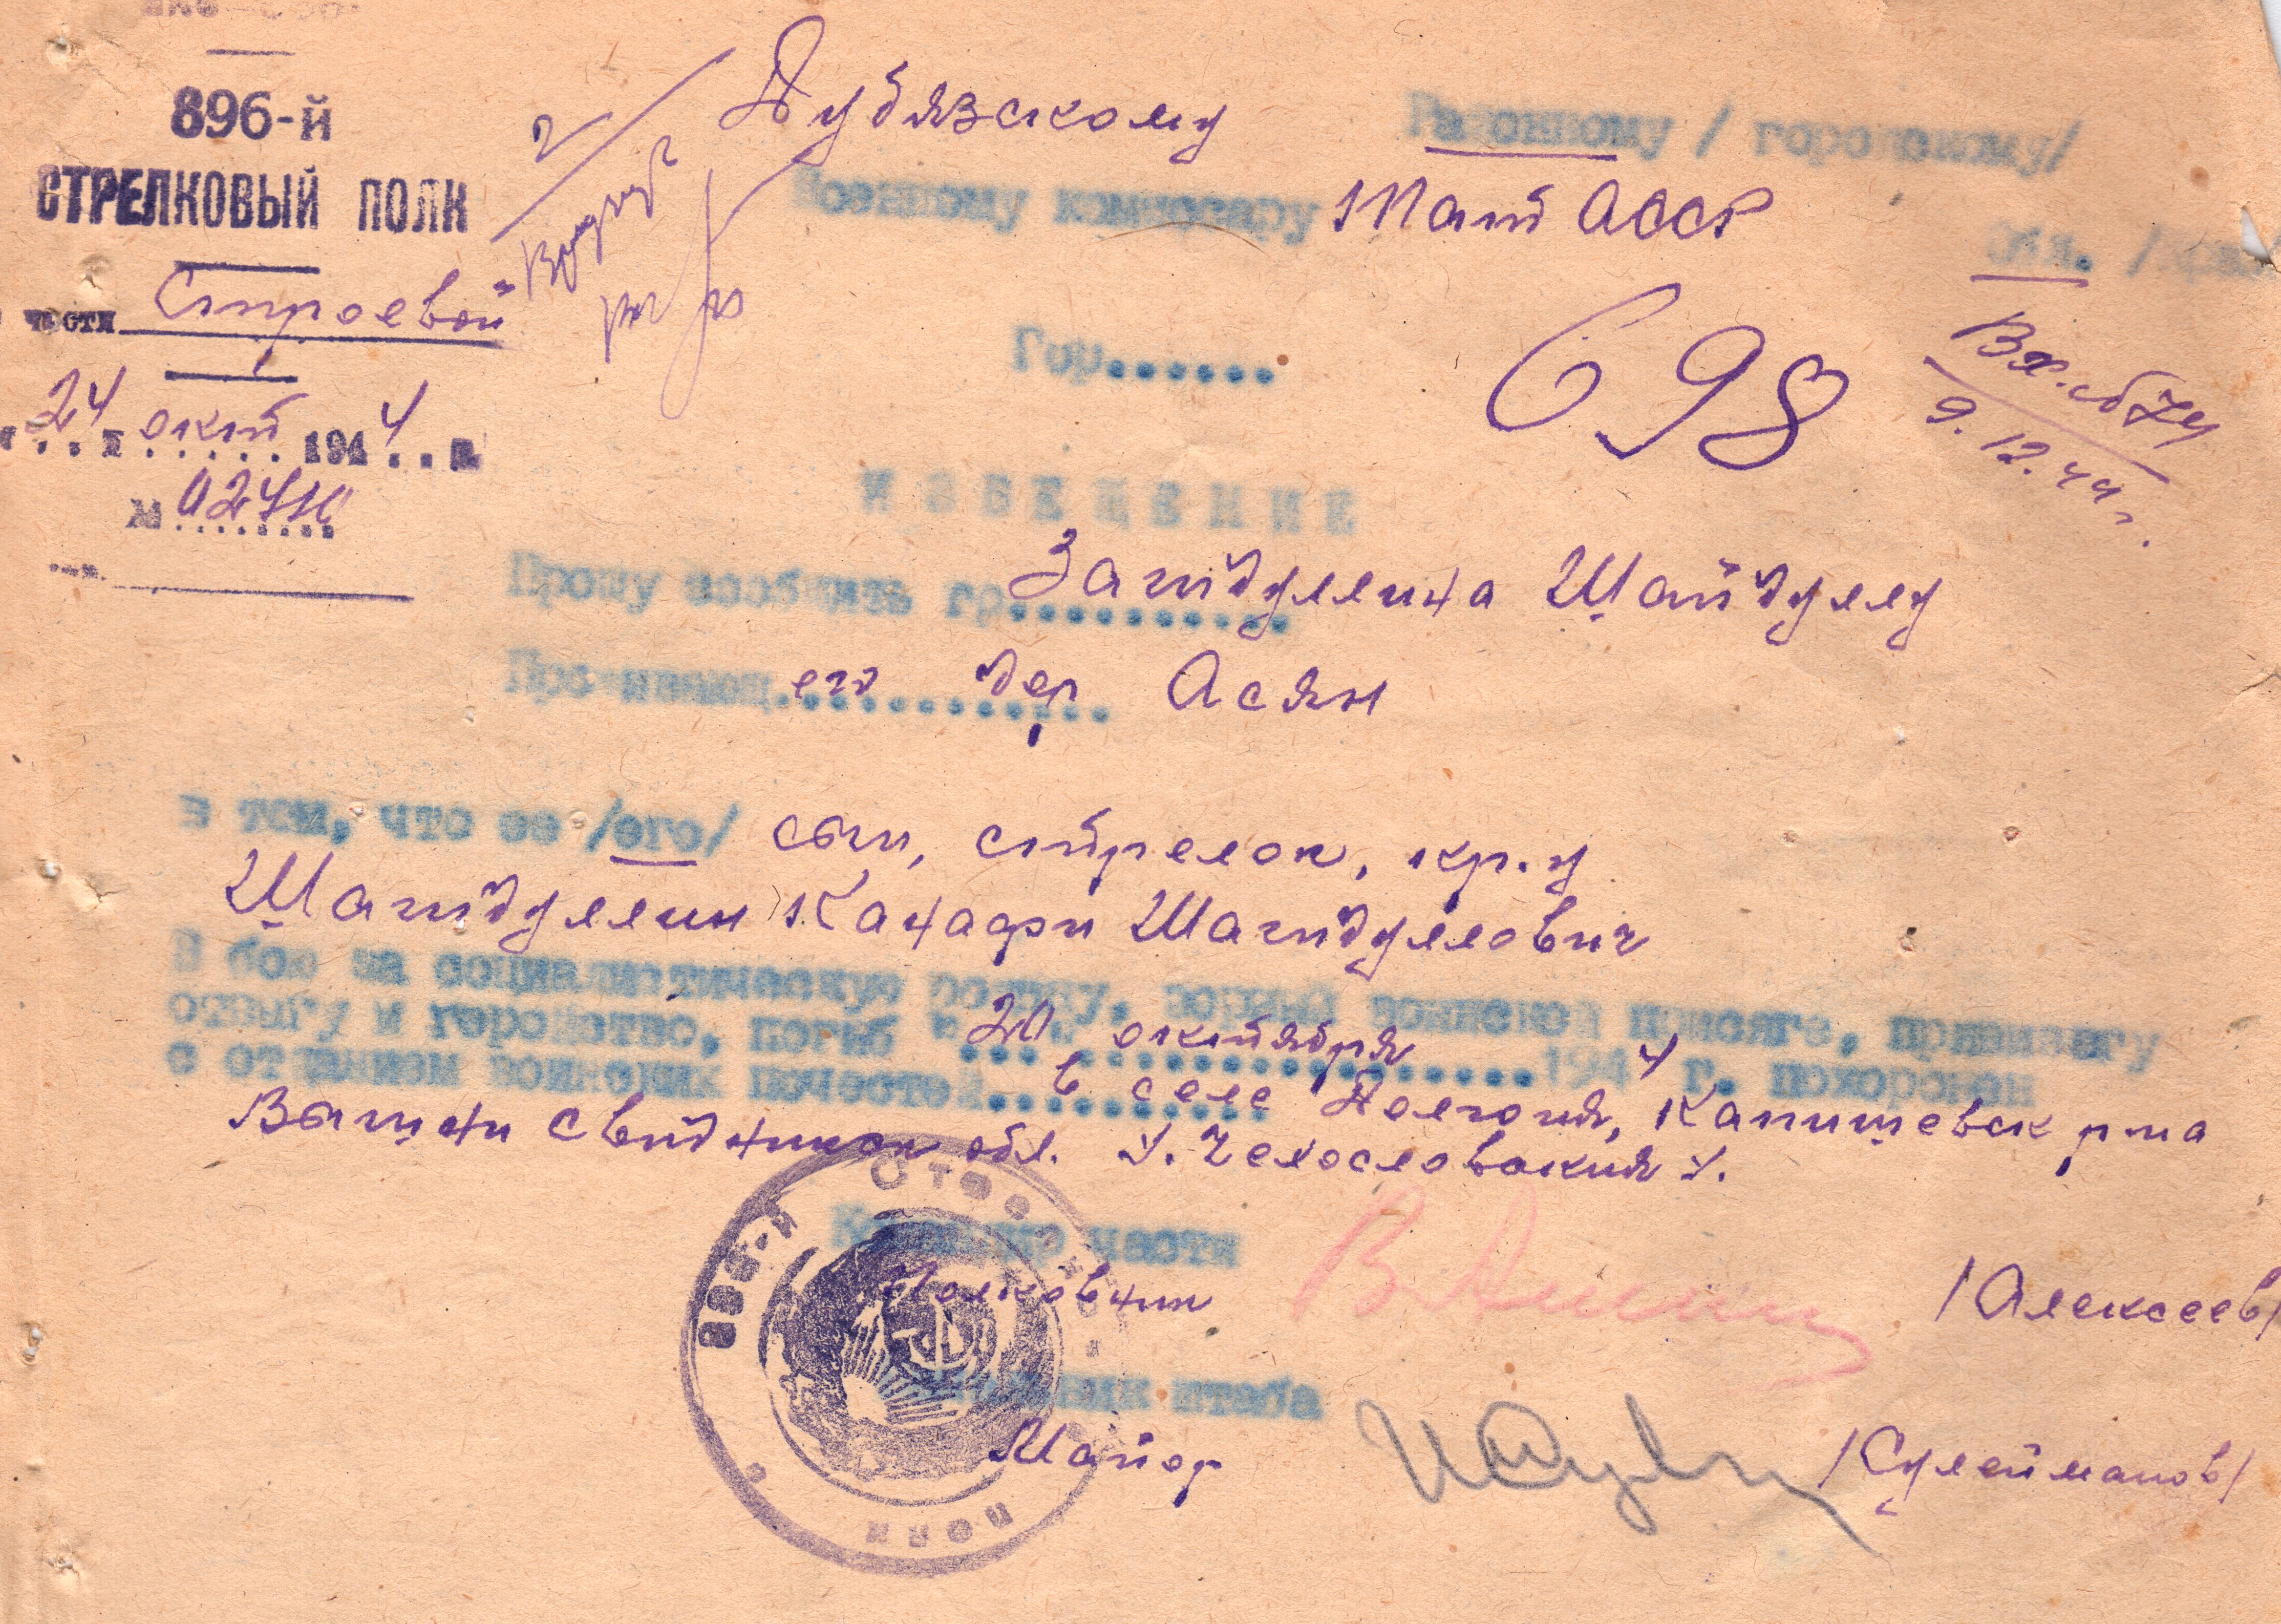 896-й
СТРЕЛКОВЫЙ ПОЛК
части Строевой
24 окт 1944 г.
№
Дубязскому Районному / городскому/
Военному комиссару Тат АССР обл. /края/
Гор......
698
Вх.
9.12.44 г.
ИЗВЕЩЕНИЕ
Прошу сообщить гр. Загидуллина Шайдулу
Проживающ.его дер Асян
в том, что ее /его/ сын, стрелок, кр.ц
Шагидуллин Канафи Шагидуллович
В бою за социалистическую родину, верный воинской присяге, проявив
отвагу и геройство, погиб "20" октября 1944 г. похоронен
с отданием воинских почестей в селе Долгоня, Капишевск р-на
Вышни Свидником обл. Чехословакия
Командир части
Полковник /Алексеев/
Начальник штаба
Майор /Сулейманов/
896-й Стрелковый полк